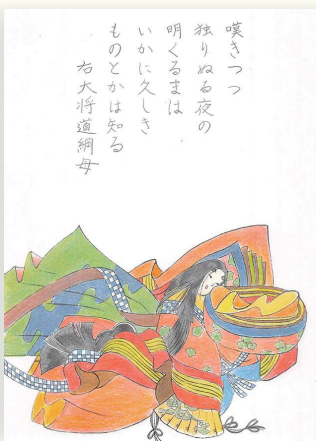 嘆きつつ
独りぬる夜の
明くるまは
いかに久しき
ものとかは知る
右大将道綱母